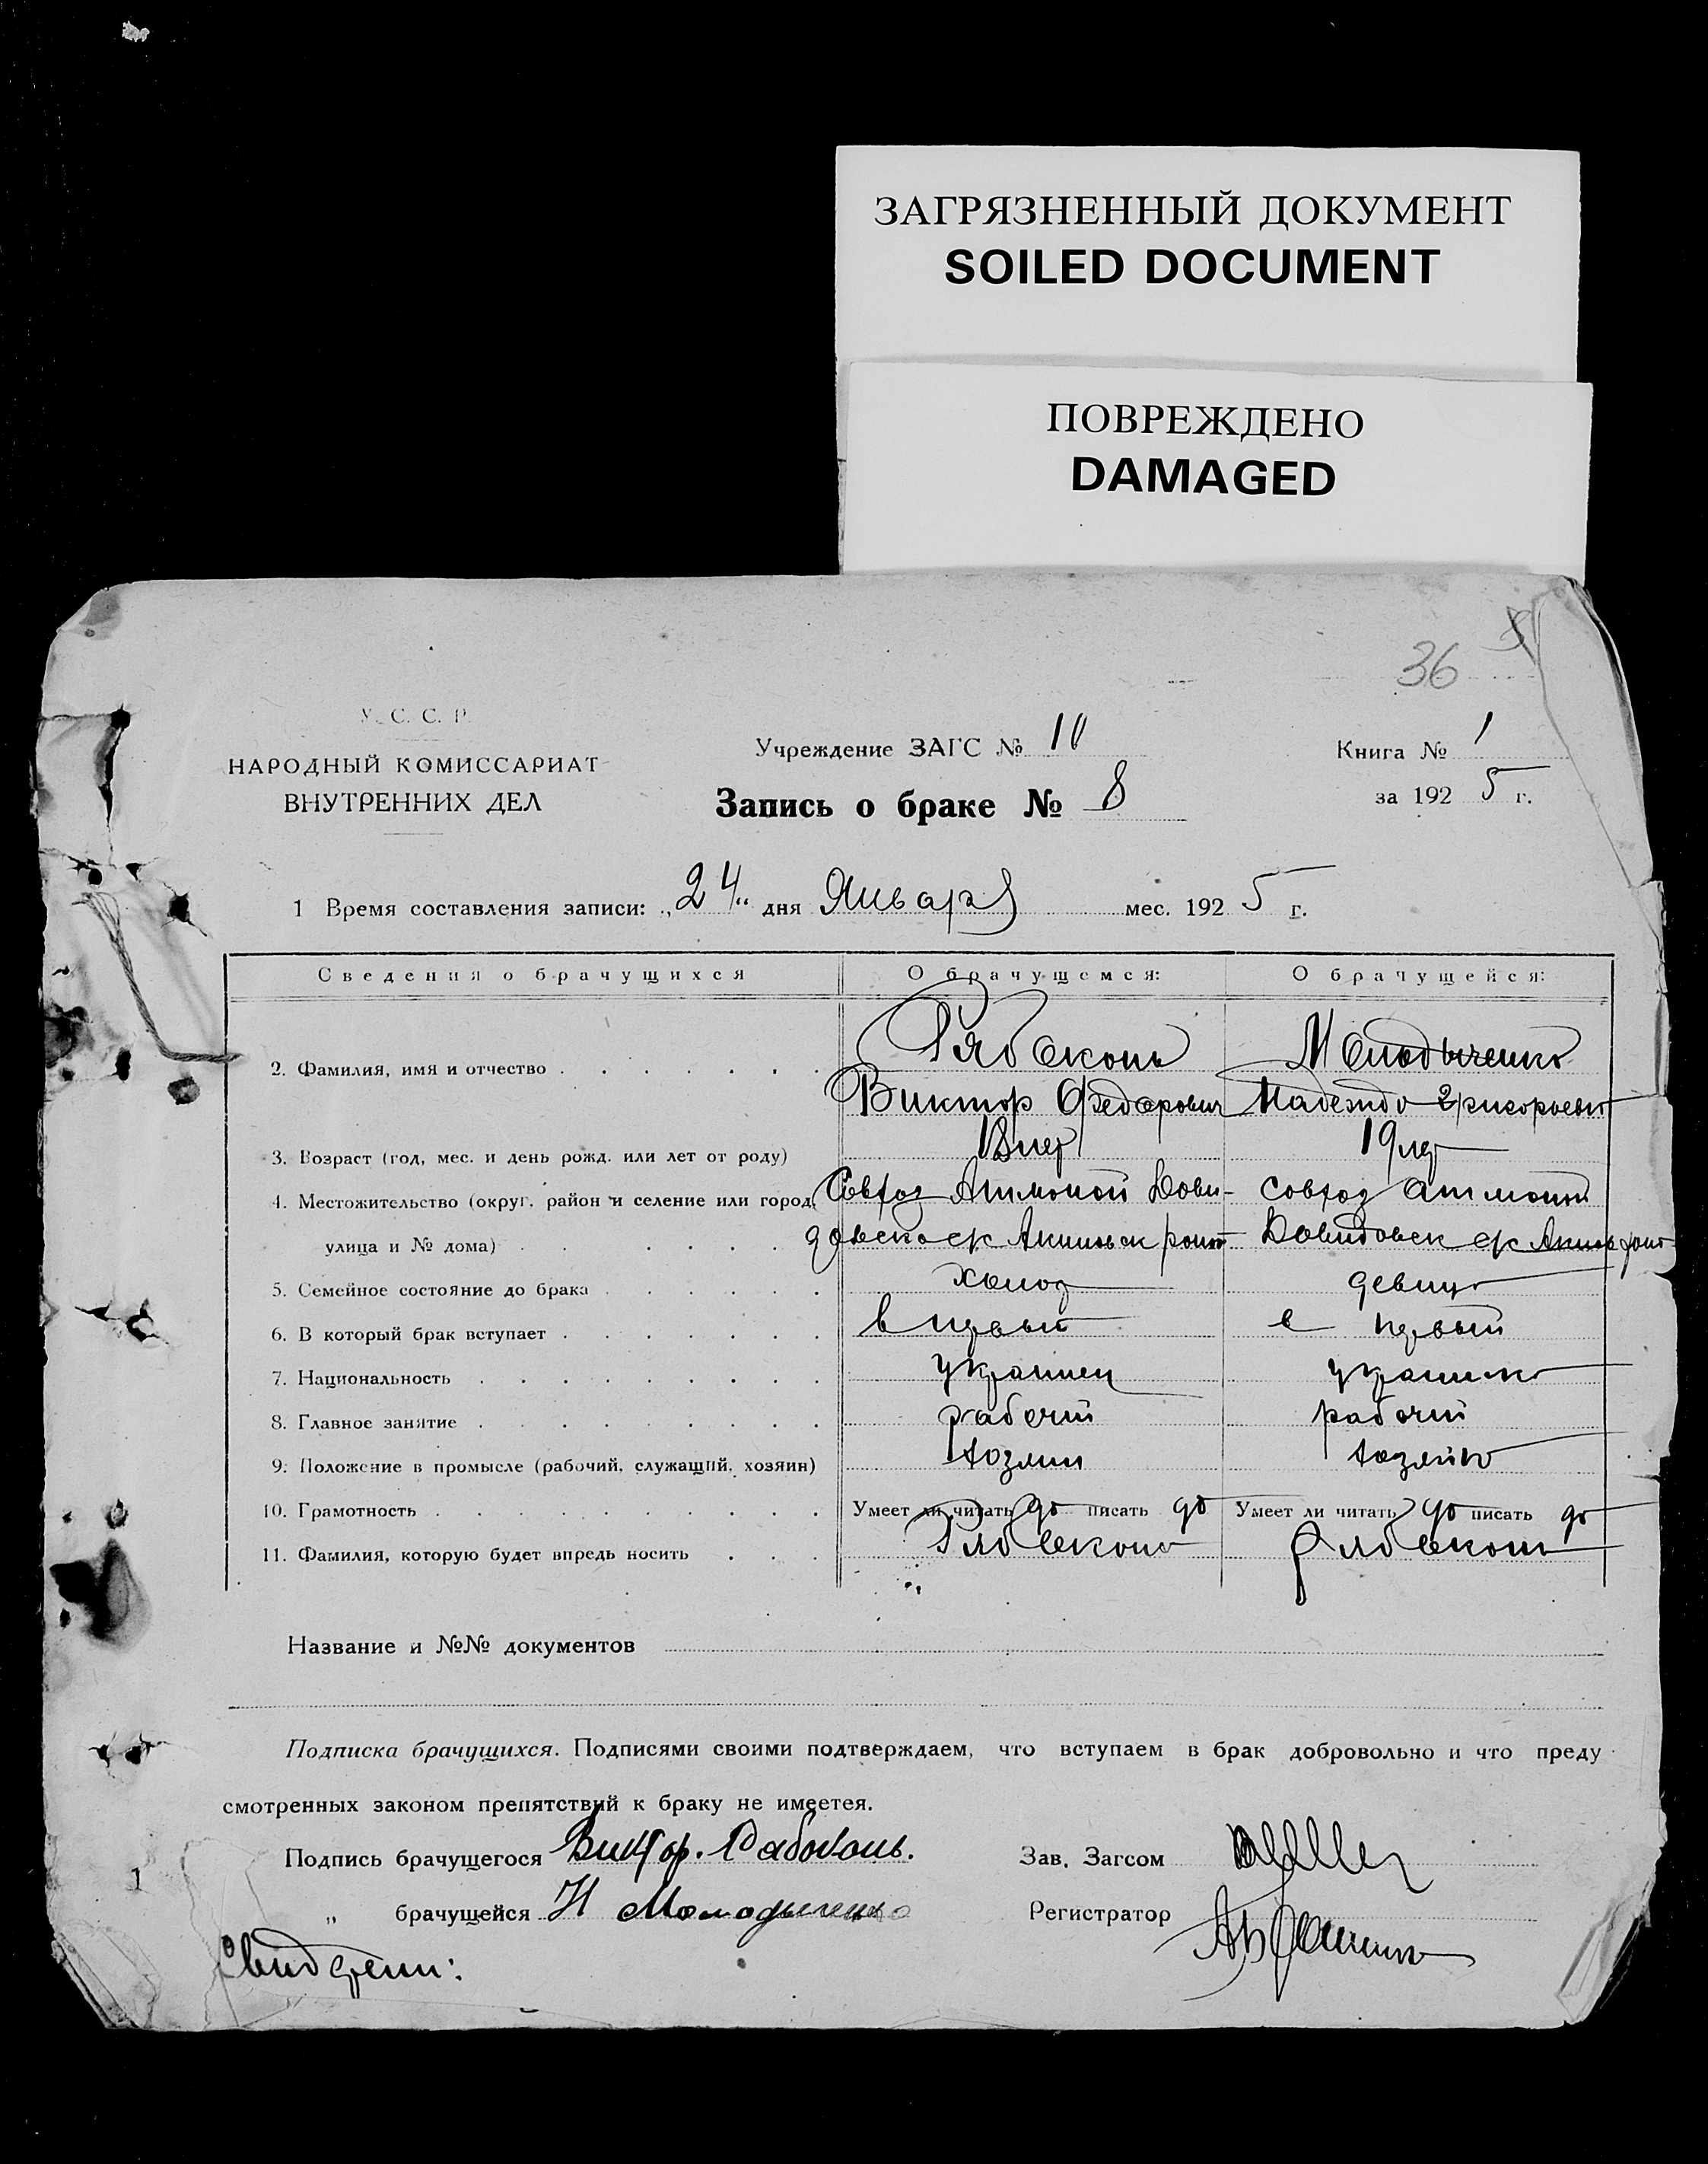 ЗАГРЯЗНЕННЫЙ ДОКУМЕНТ
SOILED DOCUMENT
ПОВРЕЖДЕНО
DAMAGED
36
У. С. С. Р.
НАРОДНЫЙ КОМИССАРИАТ
ВНУТРЕННИХ ДЕЛ
Учреждение ЗАГС № 10
Книга № 1
Запись о браке № 8
за 1925 г.
1 Время составления записи: „24" дня Января мес. 1925 г.
Сведения о брачущихся О брачущемся: О брачущейся:
2. Фамилия, имя и отчество Рябоконь Молодыченко
Виктор Федорович Надежда Григорьевн
3. Возраст (год, мес. и день рожд. или лет от роду) 18 лет 19 лет
4. Местожительство (округ, район и селение или город, Совхоз Дови- совхоз
улица и № дома) Довидовск
5. Семейное состояние до брака холос девица
6. В который брак вступает в первый в первый
7. Национальность украинец украинка
8. Главное занятие рабочий рабочий
9. Положение в промысле (рабочий, служащий, хозяин) хозяин хозяйка
10. Грамотность Умеет ли читать да писать да Умеет ли читать да писать да
11. Фамилия, которую будет впредь носить Рябоконь Рябоконь
Название и №№ документов
Подписка брачущихся. Подписями своими подтверждаем, что вступаем в брак добровольно и что преду
смотренных законом препятствий к браку не имеется.
Подпись брачущегося Виктор. Рабоконь. Зав. Загсом
1
„ брачущейся Н Молодыченко Регистратор